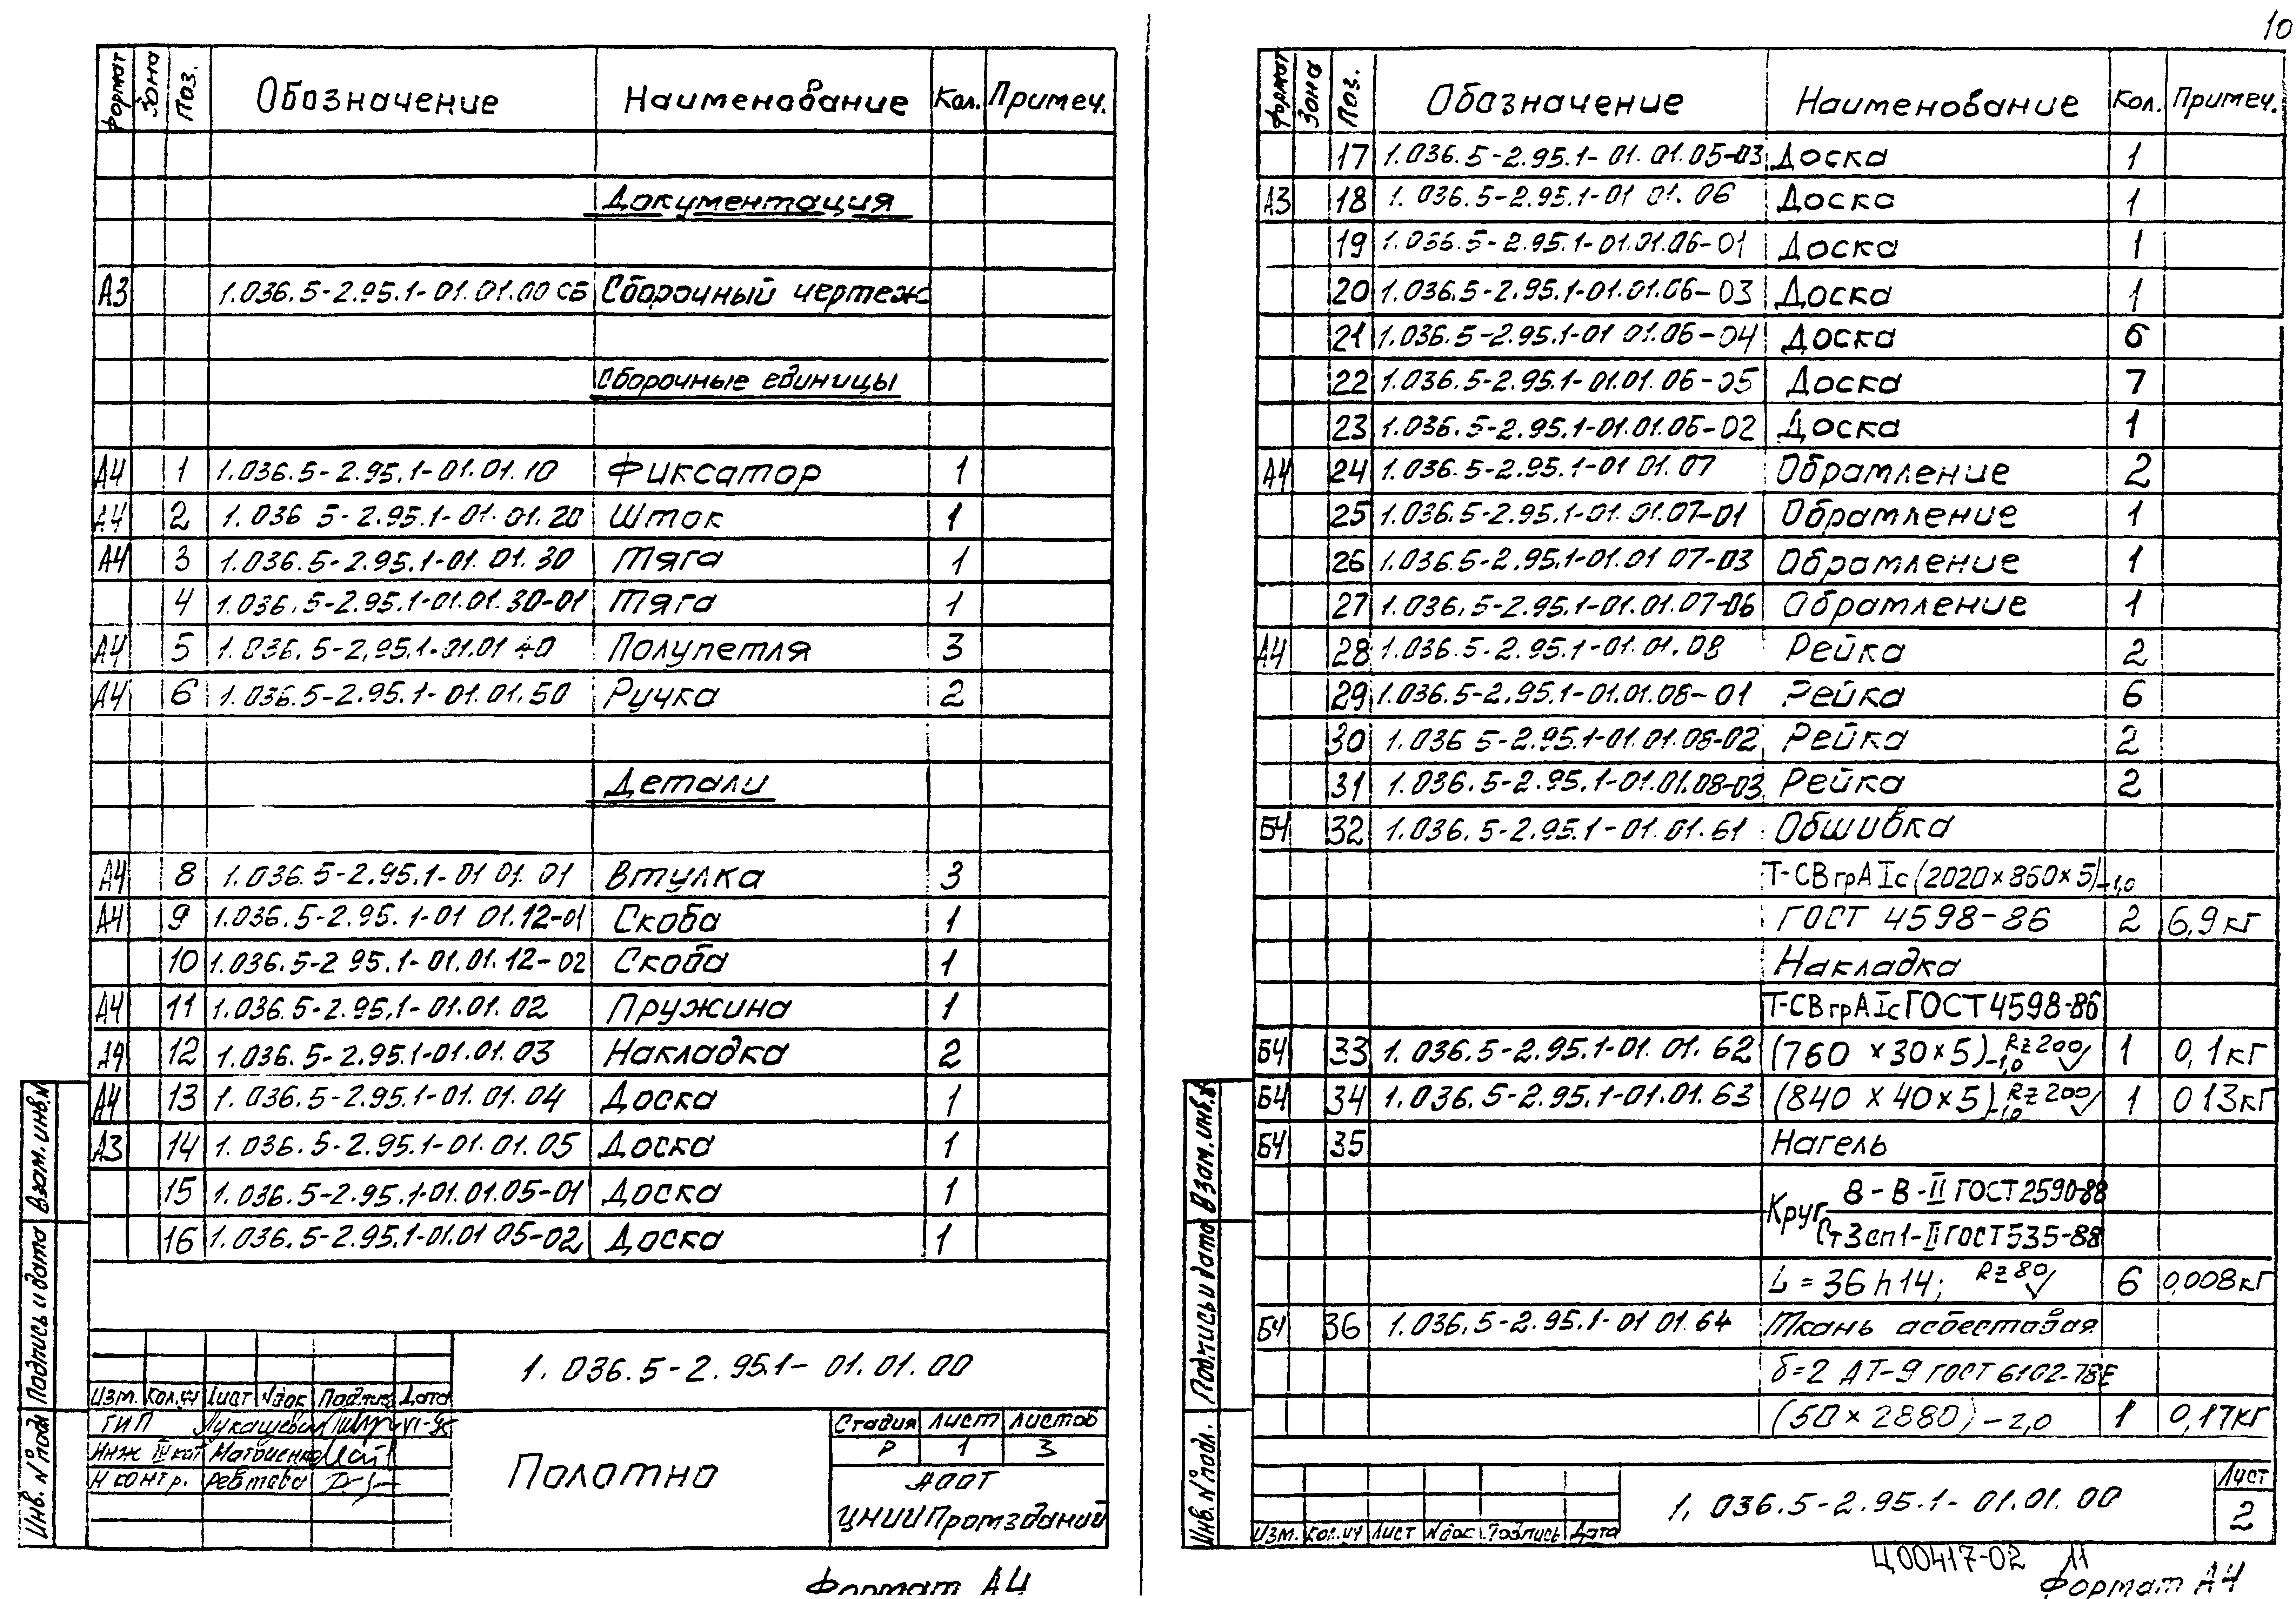 10
Формат Зона Поз. Обозначение Наименование Кол. Примеч.
Документация
А3 1.036.5-2.95.1-01.01.00 СБ Сборочный чертеж
Сборочные единицы
А4 1 1.036.5-2.95.1-01.01.10 Фиксатор 1
А4 2 1.036 5-2.95.1-01.01.20 Шток 1
А4 3 1.036.5-2.95.1-01.01.30 Тяга 1
4 1.036.5-2.95.1-01.01.30-01 Тяга 1
А4 5 1.036.5-2.95.1-01.01 40 Полупетля 3
А4 6 1.036.5-2.95.1-01.01.50 Ручка 2
Детали
А4 8 1.036.5-2.95.1-01 01.01 Втулка 3
А4 9 1.036.5-2.95.1-01 01.12-01 Скоба 1
10 1.036.5-2 95.1-01.01.12-02 Скоба 1
А4 11 1.036.5-2.95.1-01.01.02 Пружина 1
А4 12 1.036.5-2.95.1-01.01.03 Накладка 2
А4 13 1.036.5-2.95.1-01.01.04 Доска 1
А3 14 1.036.5-2.95.1-01.01.05 Доска 1
15 1.036.5-2.95.1-01.01.05-01 Доска 1
16 1.036.5-2.95.1-01.01 05-02 Доска 1
Взам. инв. №
Подпись и дата
Инв. № подл
1.036.5-2.95.1-01.01.00
Изм. Кол.уч Лист №док Подпись Дата
ГИП Лукашевич
Инж III кат Матвиенко
Н контр. Ревтова
Полотно
Стадия Лист Листов
Р 1 3
АООТ
ЦНИИПромзданий
Формат А4
Формат Зона Поз. Обозначение Наименование Кол. Примеч.
17 1.036.5-2.95.1-01.01.05-03 Доска 1
А3 18 1.036.5-2.95.1-01 01.06 Доска 1
19 1.036.5-2.95.1-01.01.06-01 Доска 1
20 1.036.5-2.95.1-01.01.06-03 Доска 1
21 1.036.5-2.95.1-01 01.06-04 Доска 6
22 1.036.5-2.95.1-01.01.06-05 Доска 7
23 1.036.5-2.95.1-01.01.06-02 Доска 1
А4 24 1.036.5-2.95.1-01 01.07 Обрамление 2
25 1.036.5-2.95.1-01.01.07-01 Обрамление 1
26 1.036.5-2.95.1-01.01 07-03 Обрамление 1
27 1.036.5-2.95.1-01.01.07-06 Обрамление 1
А4 28 1.036.5-2.95.1-01.01.08 Рейка 2
29 1.036.5-2.95.1-01.01.08-01 Рейка 6
30 1.036 5-2.95.1-01.01.08-02 Рейка 2
31 1.036.5-2.95.1-01.01.08-03 Рейка 2
БЧ 32 1.036.5-2.95.1-01.01.61 Обшивка
Т-СВ гр А Iс (2020×860×5)-1,0
ГОСТ 4598-86 2 6,9кг
Накладка
Т-СВ гр А Iс ГОСТ 4598-86
БЧ 33 1.036.5-2.95.1-01.01.62 (760×30×5)-1,0 Rz200 1 0,1кг
БЧ 34 1.036.5-2.95.1-01.01.63 (840×40×5)-1,0 Rz200 1 0 13кг
БЧ 35 Нагель
Круг 8-В-II ГОСТ 2590-88
Ст3сп1-II ГОСТ 535-88
L=36h14; Rz80 6 0,008кг
БЧ 36 1.036.5-2.95.1-01 01.64 Ткань асбестовая
δ=2 АТ-9 ГОСТ 6102-78Е
(50×2880)-2,0 1 0,17кг
Взам. инв. №
Подпись и дата
Инв. № подл.
Изм. Кол.уч Лист №док. Подпись Дата
1.036.5-2.95.1-01.01.00
Лист
2
Ц00417-02 11
Формат А4